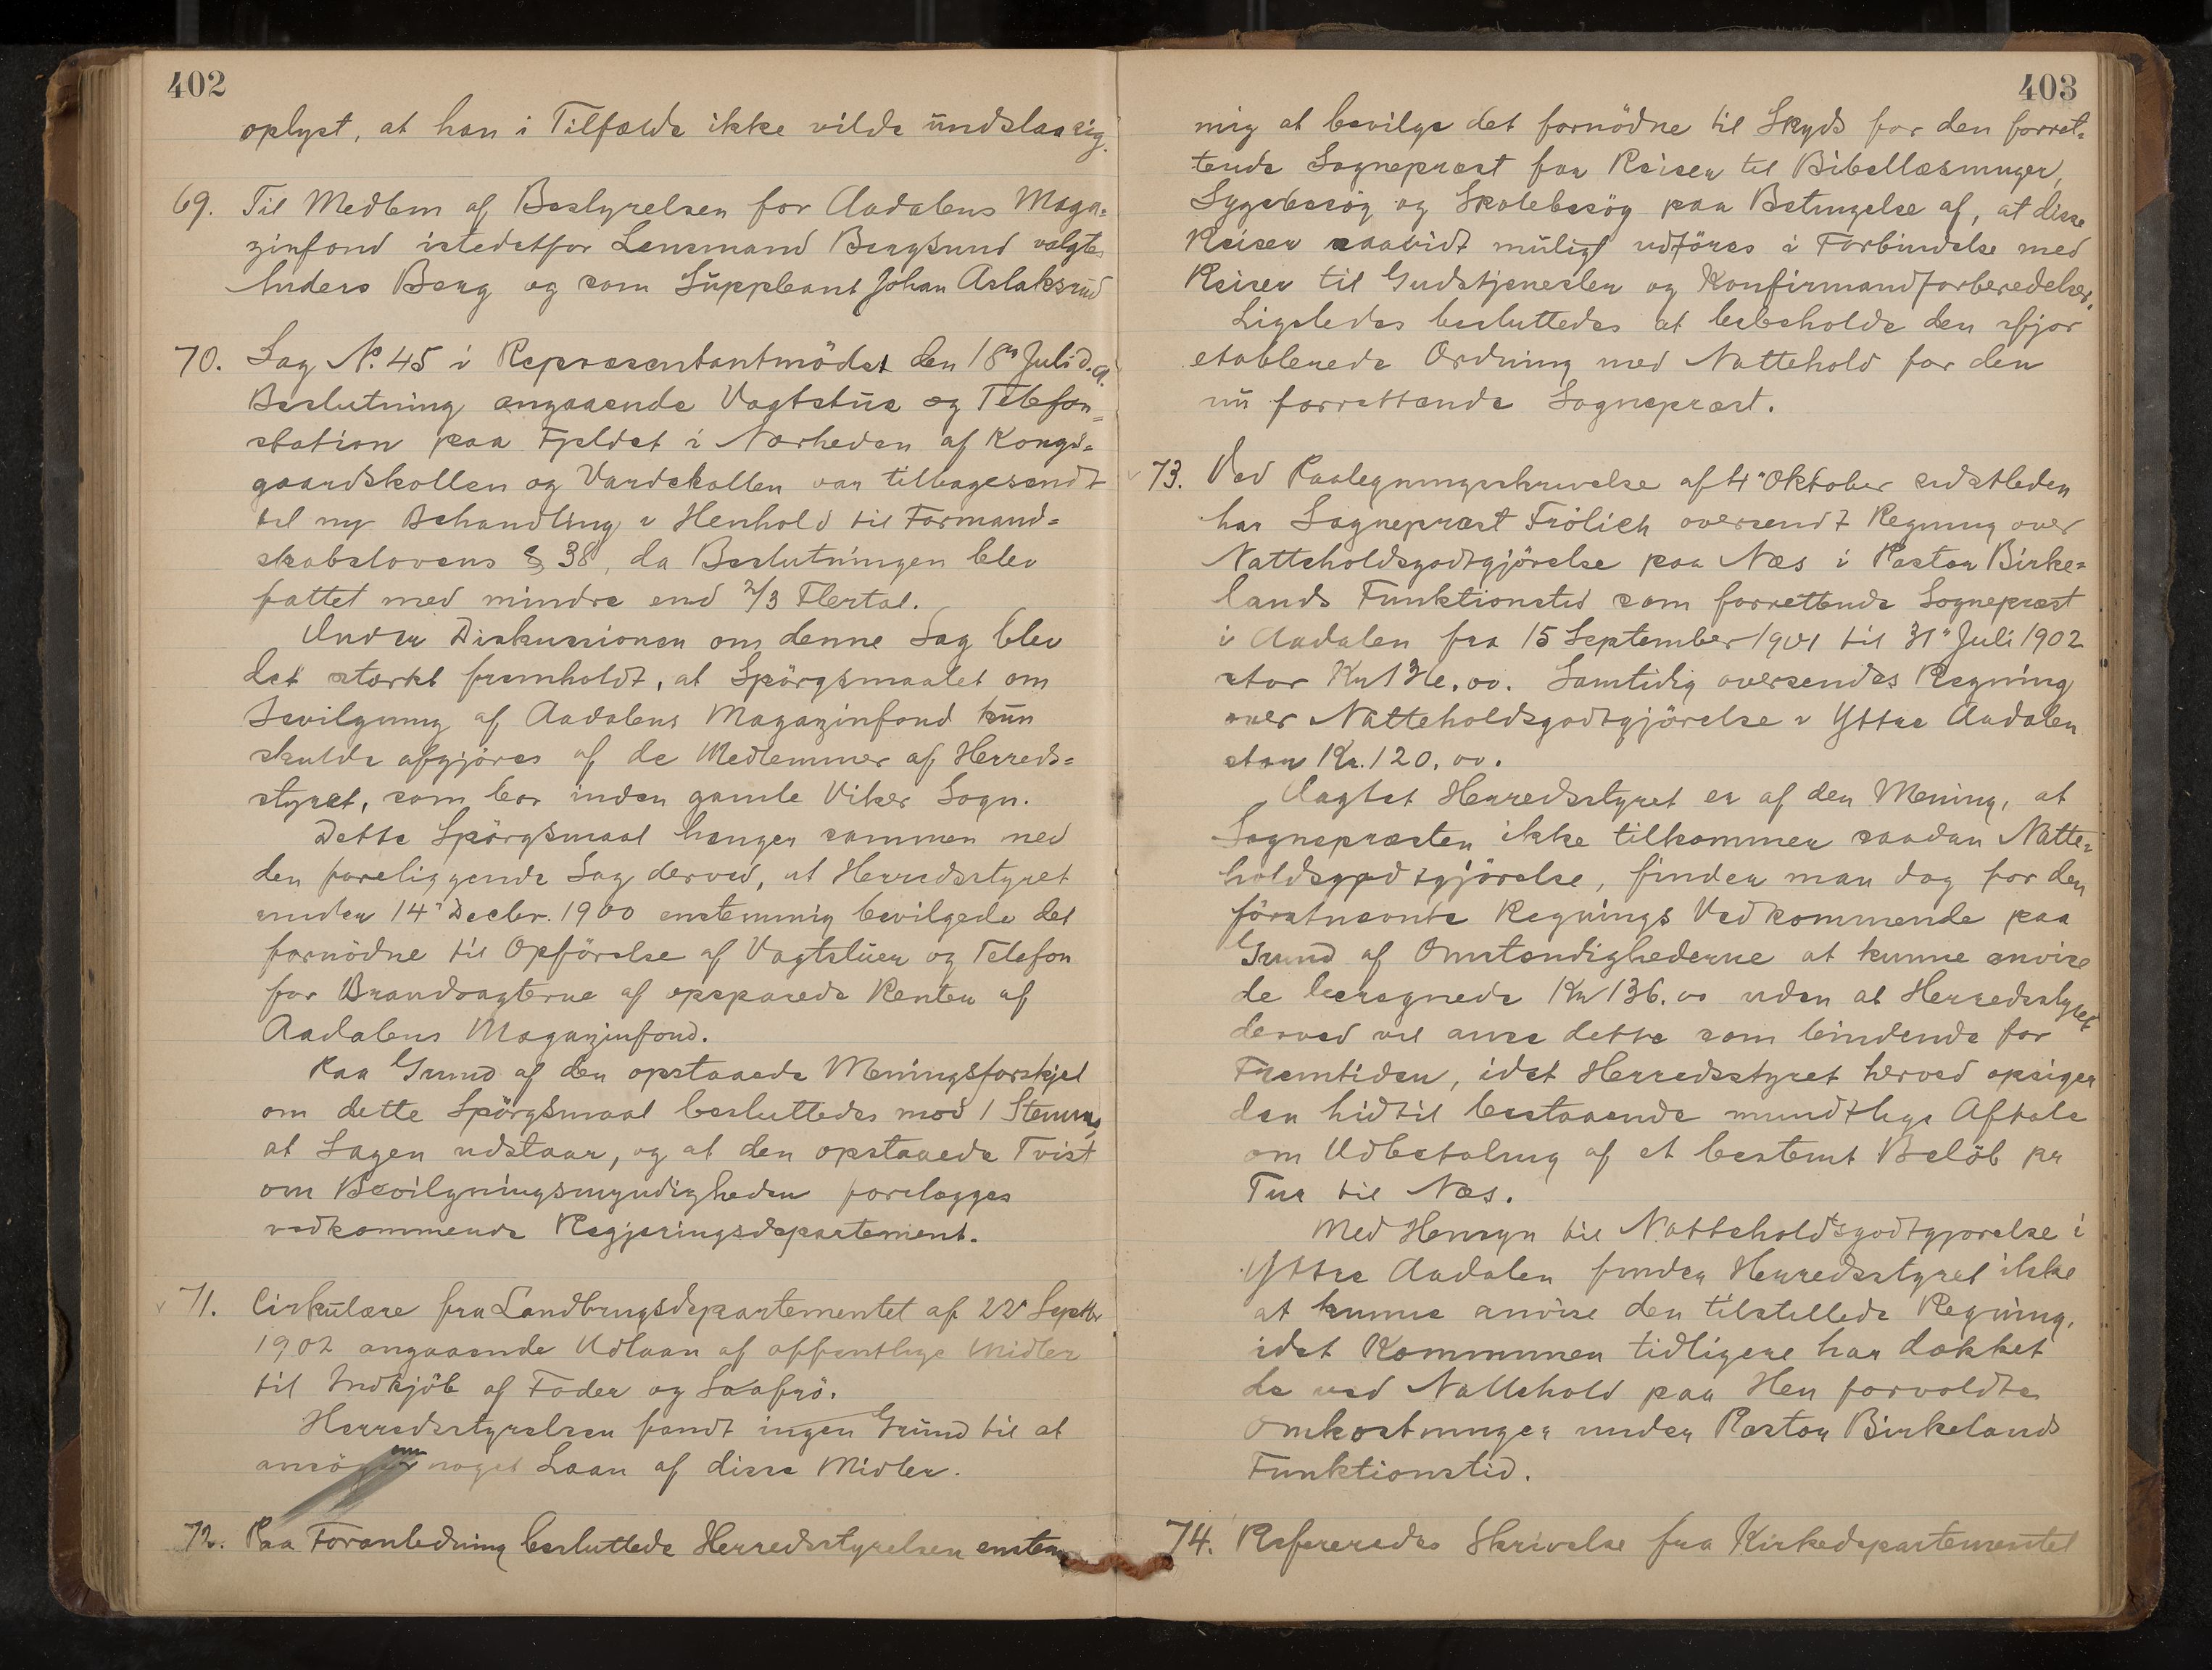 402
oplyst, at han i Tilfælde ikke vilde undslaa sig.
69. Til Medlem af Bestyrelsen for Aadalens Maga-
zinfond istedetfor Lensmand Bergsund valgtes
Anders Berg og som Suppleant Johan Aslaksrud
70. Sag No. 45 i Repræsentantmödet den 18de Juli d.a.
Beslutning angaaende Vagtstue og Telefon-
station paa Fjeldet i Nærheden af Kongs-
gaardskollen og Vardekollen var tilbagesendt
til ny Behandling i Henhold til Formand-
skabslovens § 38, da Beslutningen blev
fattet med mindre end 2/3 Flertal.
Under Diskussionen om denne Sag blev
det stærkt fremholdt, at Spörgsmaalet om
Bevilgning af Aadalens Magazinfond kun
skulde afgjöres af de Medlemmer af Herreds-
styret, som bor inden gamle Viker Sogn.
Dette Spörgsmaal hænger sammen med
den foreliggende Sag derved, at Herredsstyret
under 14" Decbr. 1900 enstemmig bevilgede det
fornödne til Opförelse af Vagtstuen og Telefon
for Brandvagterne af opsparede Renter af
Aadalens Magazinfond.
Paa Grund af den opstaaede Meningsforskjel
om dette Spörgsmaal besluttedes mod 1 Stemme,
at Sagen udstaar, og at den opstaaede Tvist
om Bevilgningsmyndigheden forelægges
vedkommende Regjeringsdepartement.
71. Cirkulære fra Landbrugsdepartementet af 22" Septbr
1902 angaaende Udlaan af offentlige Midler
til Indkjöb af Foder og Saafrö.
Herredsstyrelsen fandt ingen Grund til at
ansöge om noget Laan af disse Midler.
72. Paa Foranledning besluttede Herredsstyrelsen enstem-
403
mig at bevilge det fornödne til Skyds for den forret-
tende Sognepræst for Reiser til Bibellæsninger,
Sygebesög og Skolebesög paa Betingelse af, at disse
Reiser saavidt muligt udföres i Forbindelse med
Reiser til Gudstjenester og Konfirmandforberedelser.
Ligeledes besluttedes at bebeholde den ifjor
etablerede Ordning med Nattehold for den
nu forrettende Sogneprest.
73. Ved Paalegningsskrivelse af 4" Oktober sidstleden
har Sogneprest Frölich oversendt Regning over
Natteholdsgodtgjörelse paa Næs i Pastor Birke-
lands Funktionstid som forrettende Sogneprest
i Aadalen fra 15 September 1901 til 31" Juli 1902
stor Kr 136.00. Samtidig oversendes Regning
over Natteholdsgodtgjörelse i Yttre Aadalen
stor Kr. 120.00.
Uagtet Herredsstyret er af den Mening, at
Sognepræsten ikke tilkommer saadan Natte-
holdsgodtgjörelse, finder man dog for den
förstnevnte Regnings Vedkommende paa
Grund af Omstændighederne at kunne anvise
de beregnede Kr 136.00 uden at Herredsstyret
derved vil anse dette som bindende for
Fremtiden, idet Herredsstyret herved opsiger
den hidtil bestaaende mundtlige Aftale
om Udbetaling af et bestemt Belöb pr
Tur til Næs.
Med Hensyn til Natteholdsgodtgjorelse i
Yttre Aadalen finder Herredsstyret ikke
at kunne anvise den tilstillede Regning,
idet Kommunen tidligere har dækket
de ved Nattehold paa Hen forvoldte
Omkostninger under Pastor Birkelands
Funktionstid.
74. Refereredes Skrivelse fra Kirkedepartementet